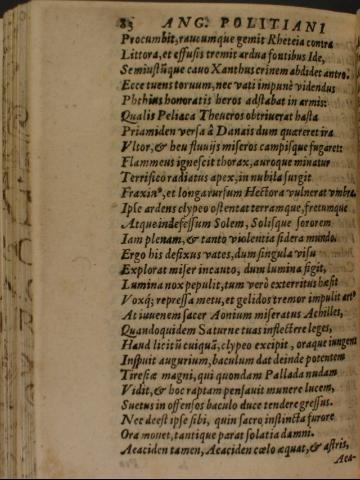 85 ANG. POLITIANI
Procumbit, raucumque gemit Rheteia contra
Littora, et effusis tremit ardua fontibus Ide,
Semiustũque cauo Xanthus crinem abdidet antro.
Ecce tuens toruum, nec vati impunè videndus
Phthius honoratis heros adstabat in armis:
Qualis Peliaca Theucros obtriuerat hasta
Priamiden versa à Danais dum quæreret ira
Vltor, & heu fluuijs miseros campisque fugaret:
Flammeus ignescit thorax, auroque minatur
Terrifico radiatus apex, in nubila surgit
Fraxinꝰ, et longarursum Hectora vulnerat vmbra.
Ipse ardens clypeo ostentat terramque, fretumque
Atque indefessum Solem, Solisque sororem
Iam plenam, & tanto violentia sidera mundo.
Ergo his defixus vates, dum singula visu
Explorat miser incauto, dum lumina figit,
Lumina nox pepulit, tum verò exterritus hæsit
Voxq; repressa metu, et gelidos tremor impulit artꝰ
At iuuenem sacer Aonium miseratus Achilles,
Quandoquidem Saturne tuas inflectere leges,
Haud licitũ cuiquã, clypeo excipit, oraque iungens
Inspuit augurium, baculum dat deinde potentem
Tiresiæ magni, qui quondam Pallada nudam
Vidit, & hoc raptam pensauit munere lucem,
Suetus in offensos baculo duce tendere gressus.
Nec deest ipse sibi, quin sacro instincta furore
Ora mouet, tantique parat solatia damni.
Aeaciden tamen, Aeaciden cælo æquat, & astris,
Aea-